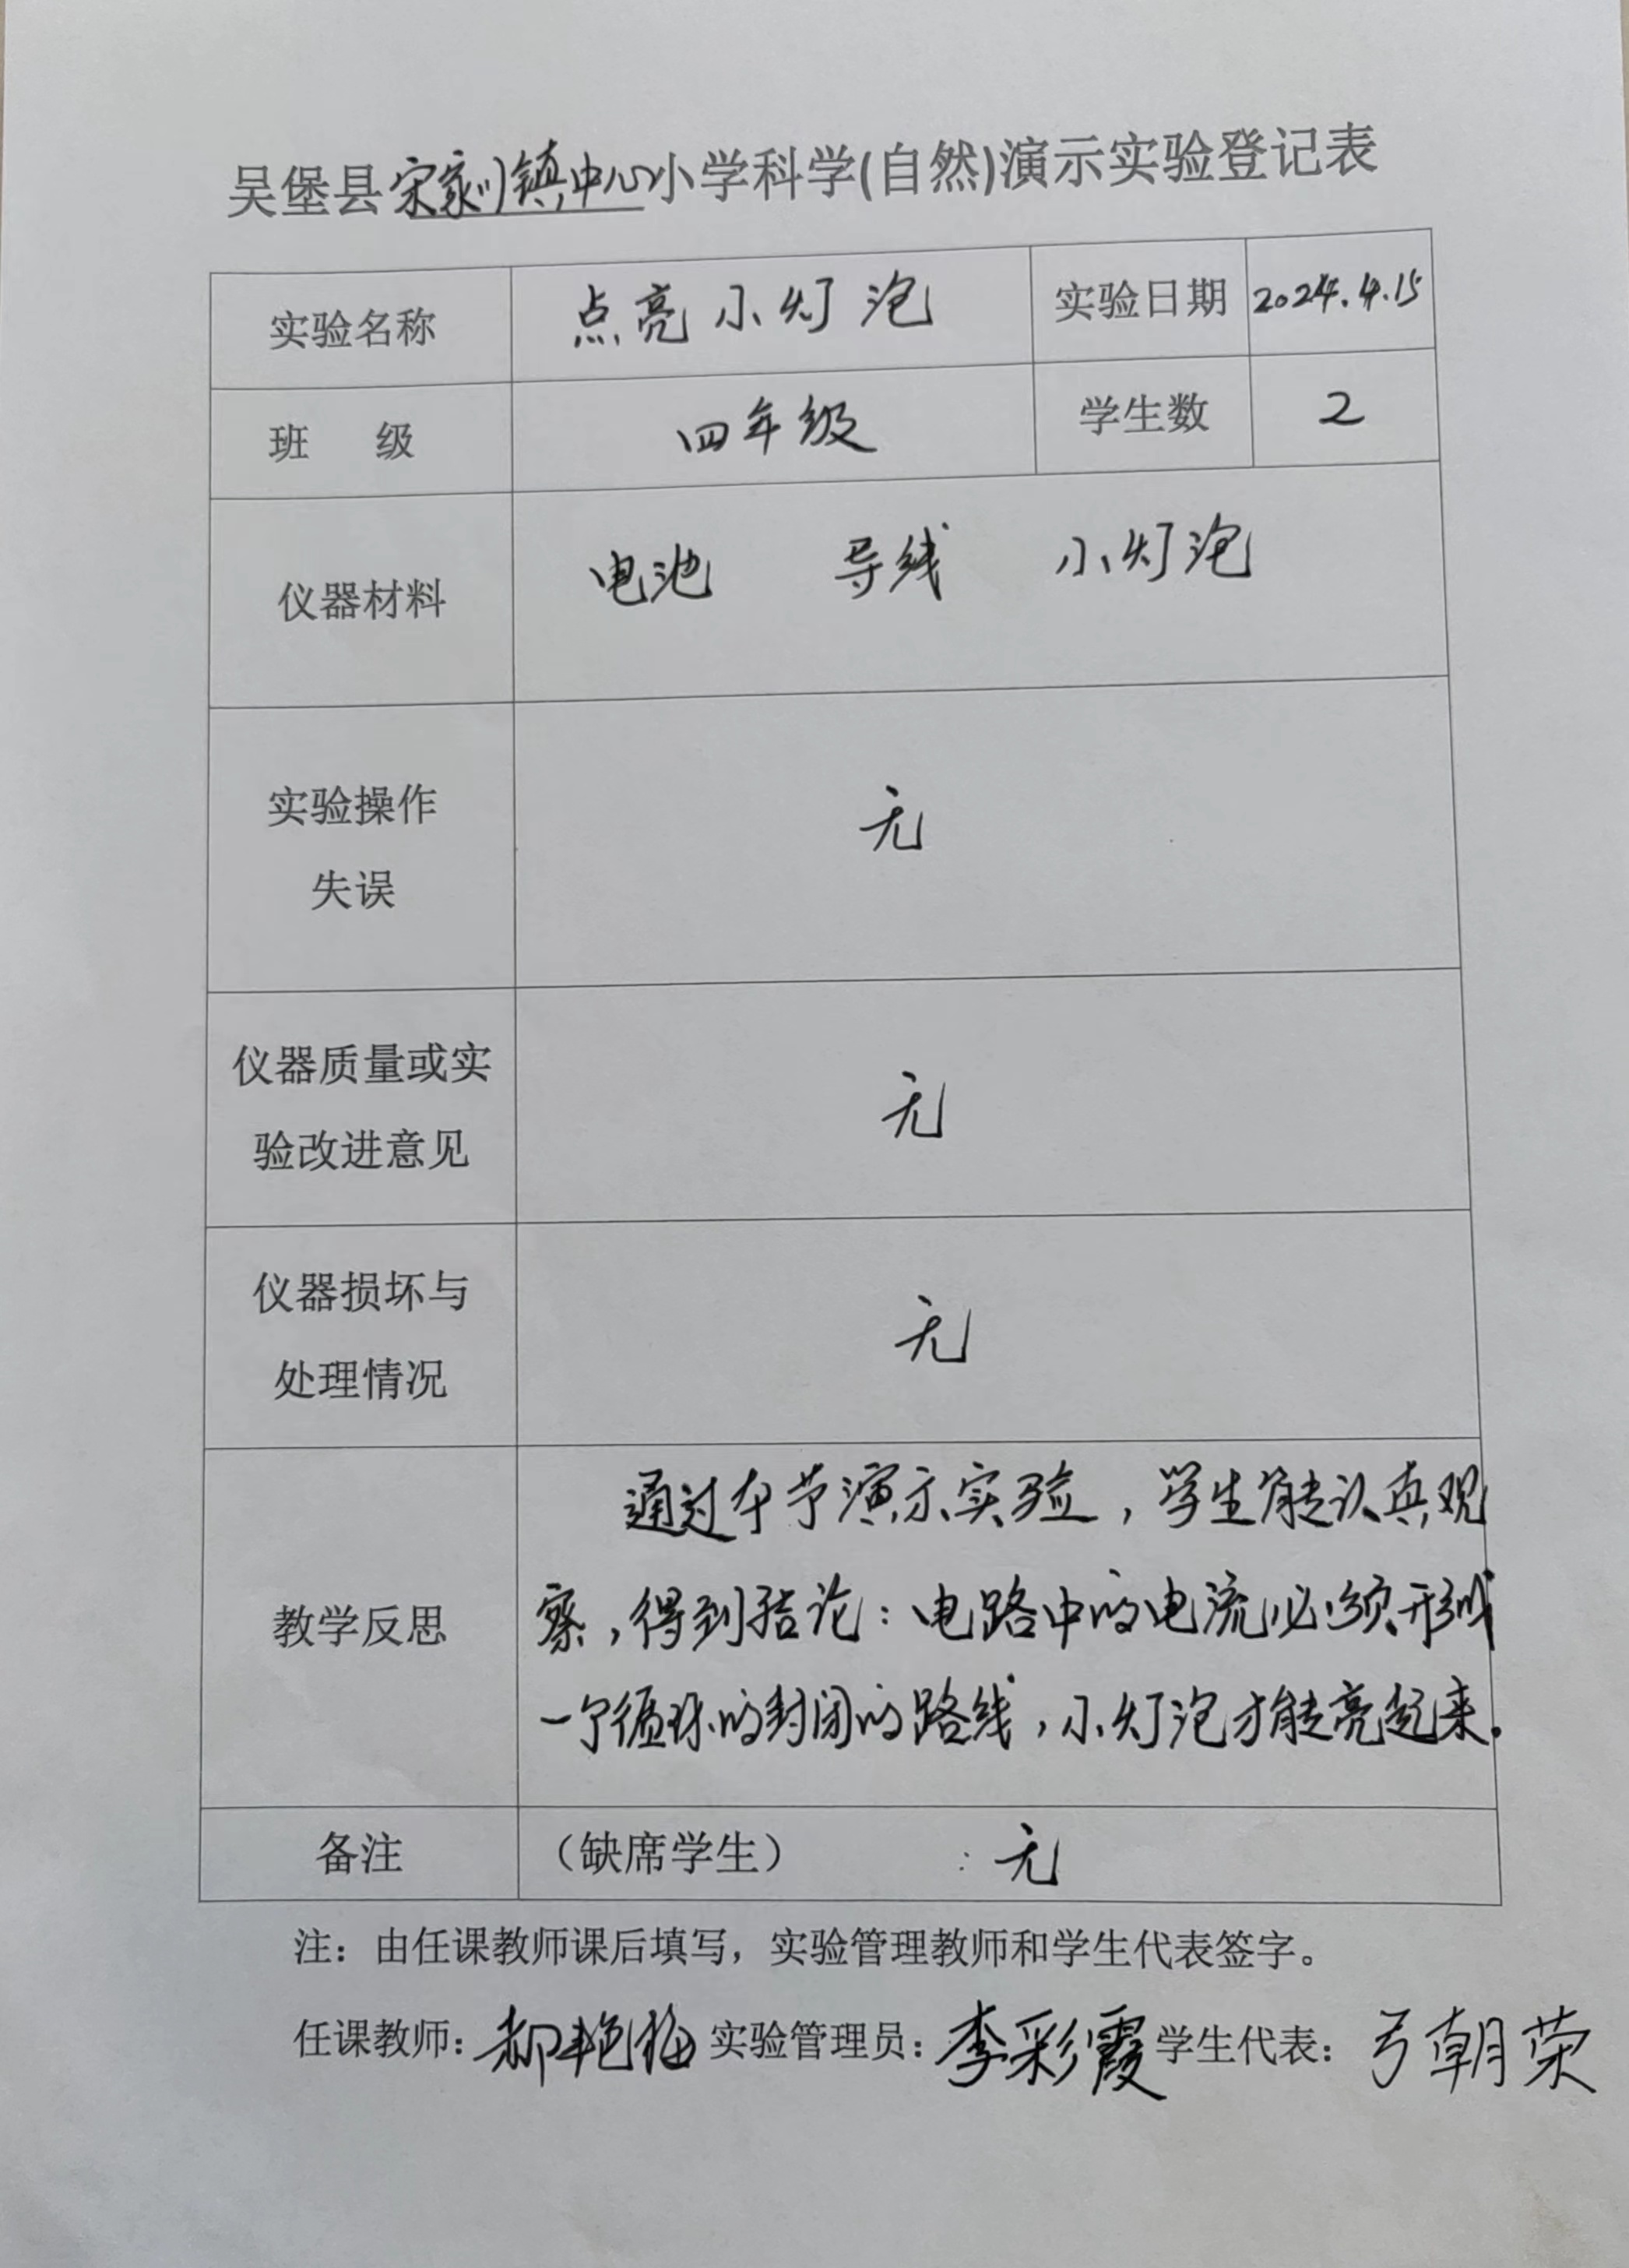 吴堡县宋家川镇中心小学科学(自然)演示实验登记表
实验名称 点亮小灯泡 实验日期 2024.4.15
班 级 四年级 学生数 2
仪器材料 电池 导线 小灯泡
实验操作
失误
无
仪器质量或实
验改进意见
无
仪器损坏与
处理情况
无
教学反思
通过本节演示实验，学生能认真观
察，得到结论：电路中的电流必须形成
一个循环的封闭的路线，小灯泡才能亮起来。
备注 （缺席学生） ：无
注：由任课教师课后填写，实验管理教师和学生代表签字。
任课教师：郝艳梅 实验管理员：李彩霞 学生代表：弓朝荣